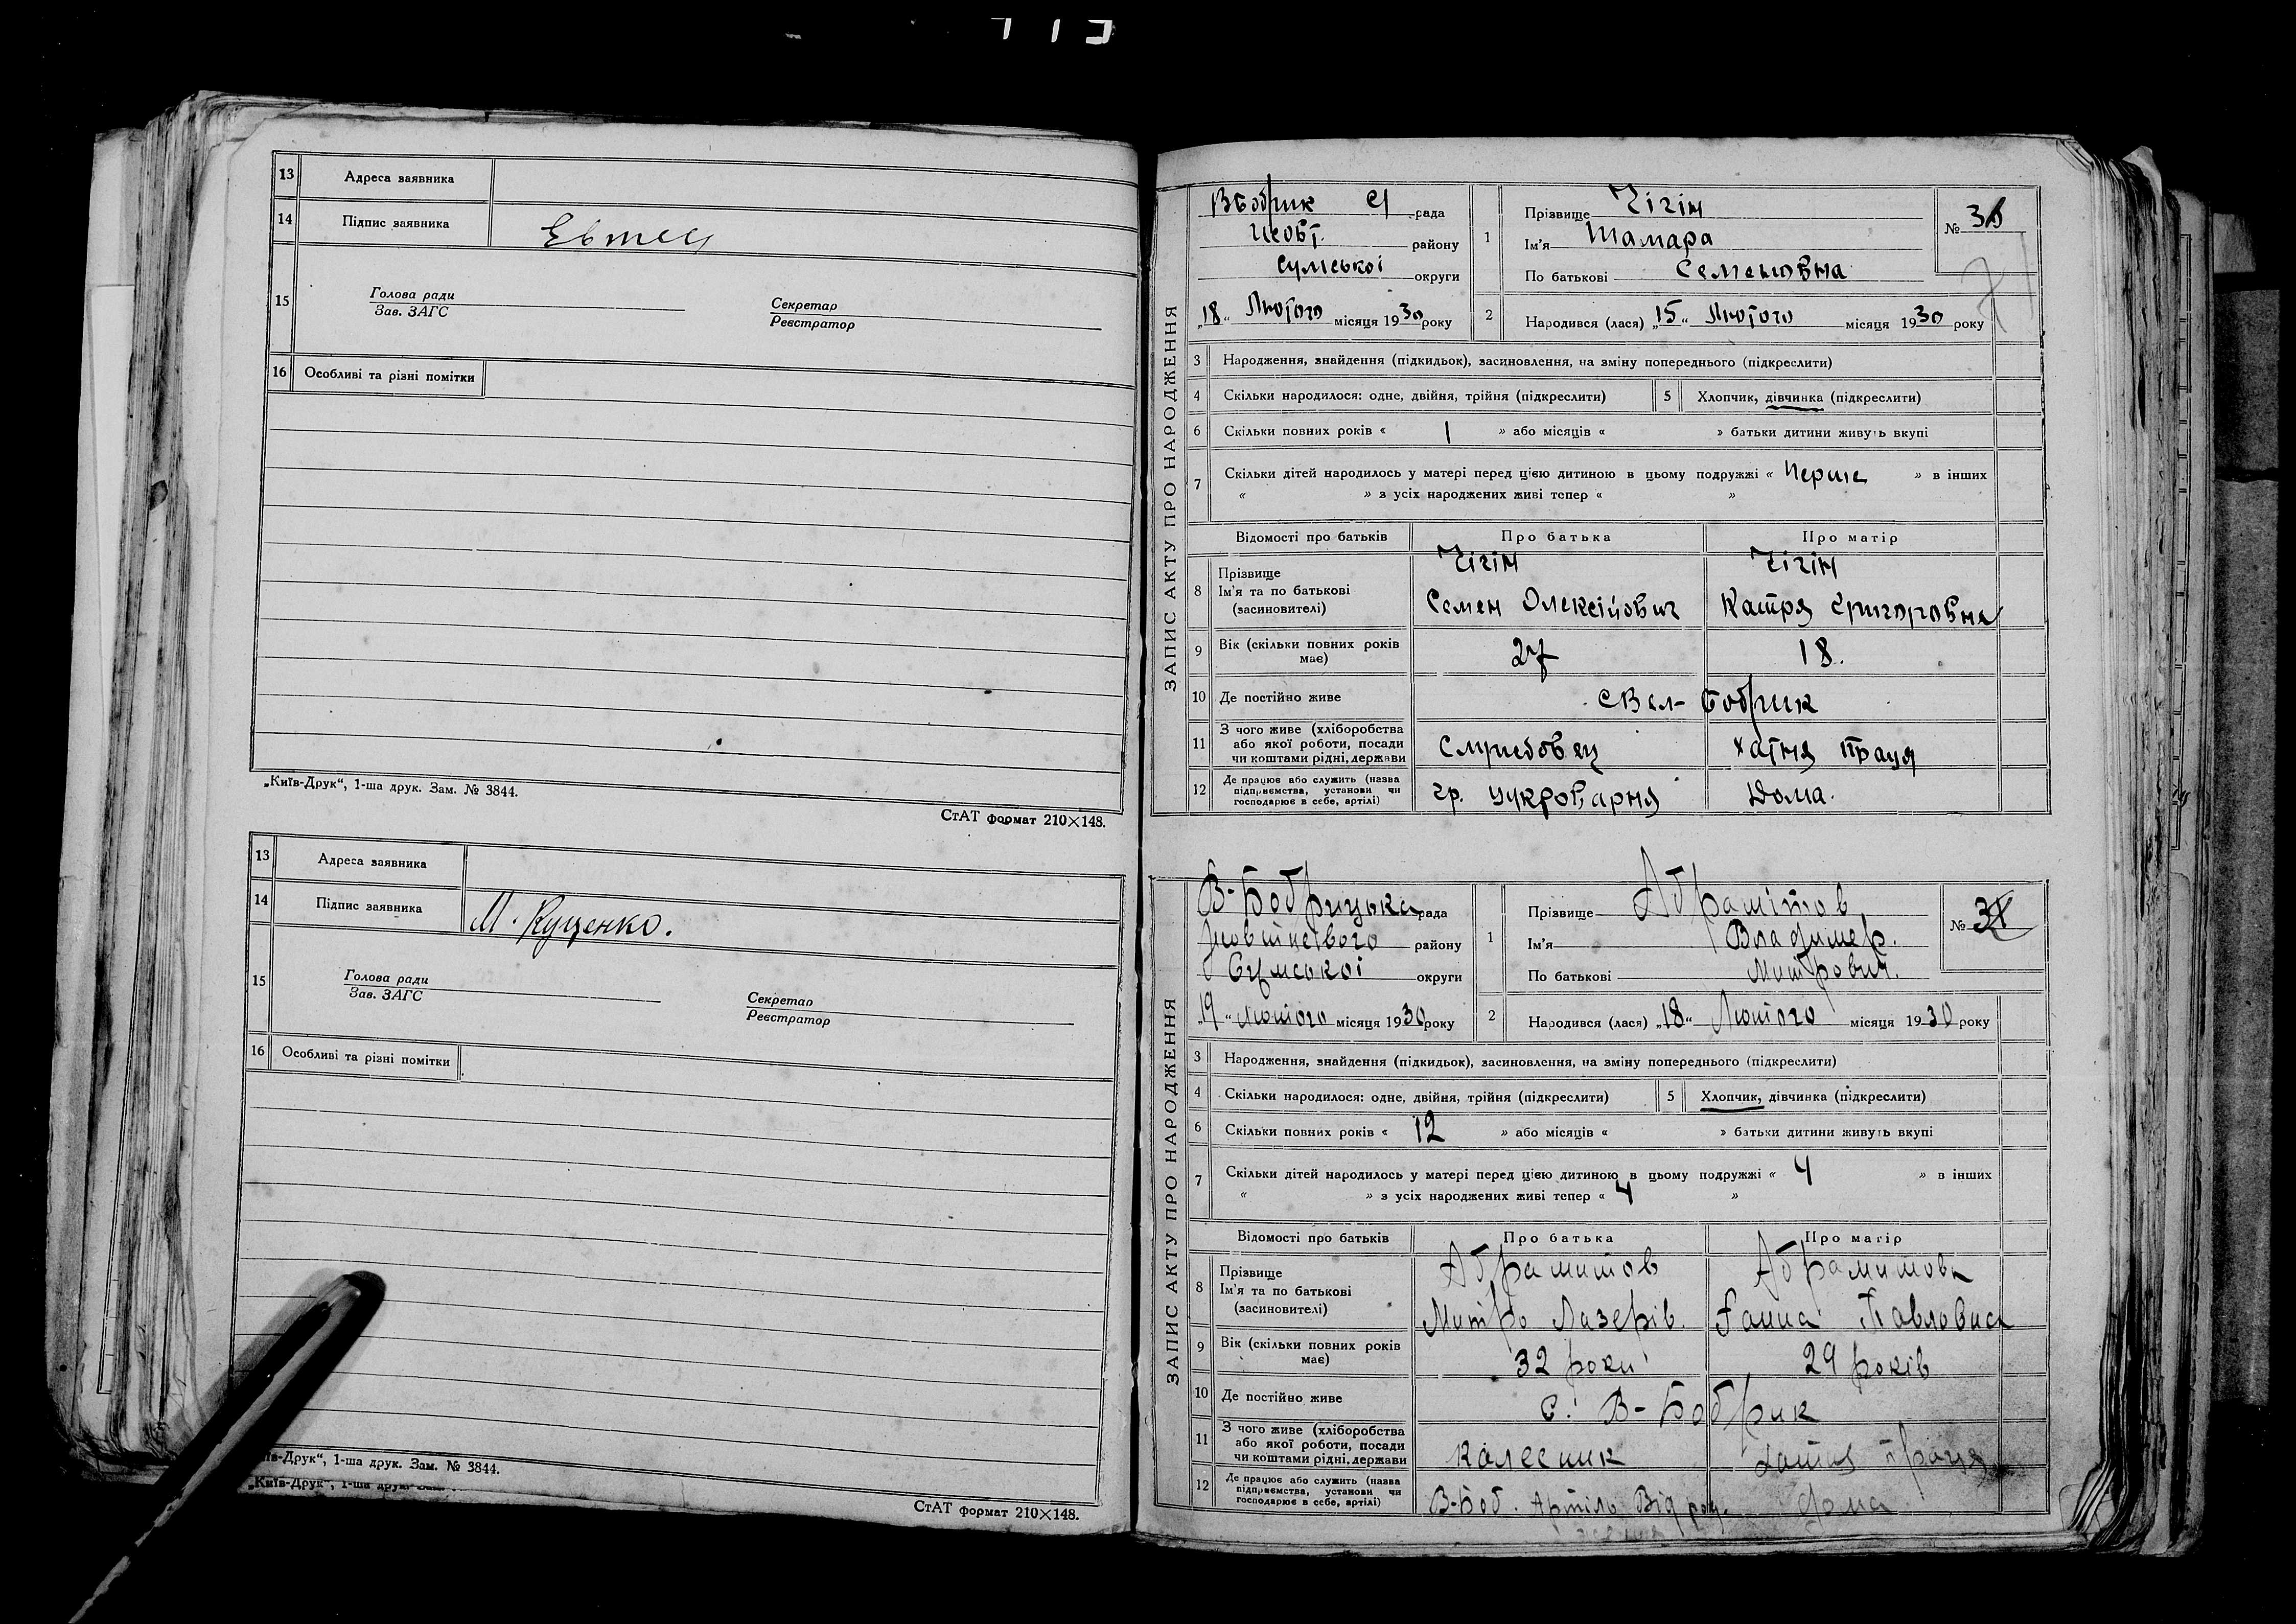 13 Адреса заявника
14 Підпис заявника
15 Голова ради
Зав. ЗАГС
Секретар
Реєстратор
16 Особливі та різні помітки
„Київ-Друк“, 1-ша друк. Зам. № 3844.
СтАТ формат 210×148.
13 Адреса заявника
14 Підпис заявника М. Куценко.
15 Голова ради
Зав. ЗАГС
Секретар
Реєстратор
16 Особливі та різні помітки
їв-Друк“, 1-ша друк. Зам. № 3844.
СтАТ формат 210×148.
ЗАПИС АКТУ ПРО НАРОДЖЕННЯ
В Бобрик рада
району
Сумської округи
„18“ Лютого місяця 1930 року
1 Прізвище Чігін
Ім'я Тамара
По батькові Семеновна
№
2 Народився (лася) „15“ Лютого місяця 1930 року
3 Народження, знайдення (підкидьок), засиновлення, на зміну попереднього (підкреслити)
4 Скільки народилося: одне, двійня, трійня (підкреслити) 5 Хлопчик, дівчинка (підкреслити)
6 Скільки повних років « 1 » або місяців « » батьки дитини живуть вкупі
7 Скільки дітей народилось у матері перед цією дитиною в цьому подружжі « Перше » в інших
« » з усіх народжених живі тепер « »
Відомості про батьків Про батька Про матір
8 Прізвище Чігін Чігін
Ім'я та по батькові Семен Олексійович Катря Григоровна
(засиновителі)
9 Вік (скільки повних років має) 27 18.
10 Де постійно живе с Вел-Бобрик
11 З чого живе (хліборобства
або якої роботи, посади
чи коштами рідні, держави
Службовец Хатня праця
12 Де працює або служить (назва
підприємства, установи чи
господарює в себе, артілі)
гр. цукроварня Дома.
ЗАПИС АКТУ ПРО НАРОДЖЕННЯ
В-Бобрицька рада
району
Сумської округи
„19“ Лютого місяця 1930 року
1 Прізвище Абрамітов
Ім'я Владимер.
По батькові Митрович.
№
2 Народився (лася) „18“ Лютого місяця 1930 року
3 Народження, знайдення (підкидьок), засиновлення, на зміну попереднього (підкреслити)
4 Скільки народилося: одне, двійня, трійня (підкреслити) 5 Хлопчик, дівчинка (підкреслити)
6 Скільки повних років « 12 » або місяців « » батьки дитини живуть вкупі
7 Скільки дітей народилось у матері перед цією дитиною в цьому подружжі « 4 » в інших
« » з усіх народжених живі тепер « 4 »
Відомості про батьків Про батька Про матір
8 Прізвище Абрамитов Абрамитова
Ім'я та по батькові Митро Лазерів. Ганна Павловна
(засиновителі)
9 Вік (скільки повних років має) 32 роки 29 років
10 Де постійно живе с. В-Бобрик
11 З чого живе (хліборобства
або якої роботи, посади
чи коштами рідні, держави
Колесник Хатня праця
12 Де працює або служить (назва
підприємства, установи чи
господарює в себе, артілі)
В-Боб. Артіль Відрод. дома